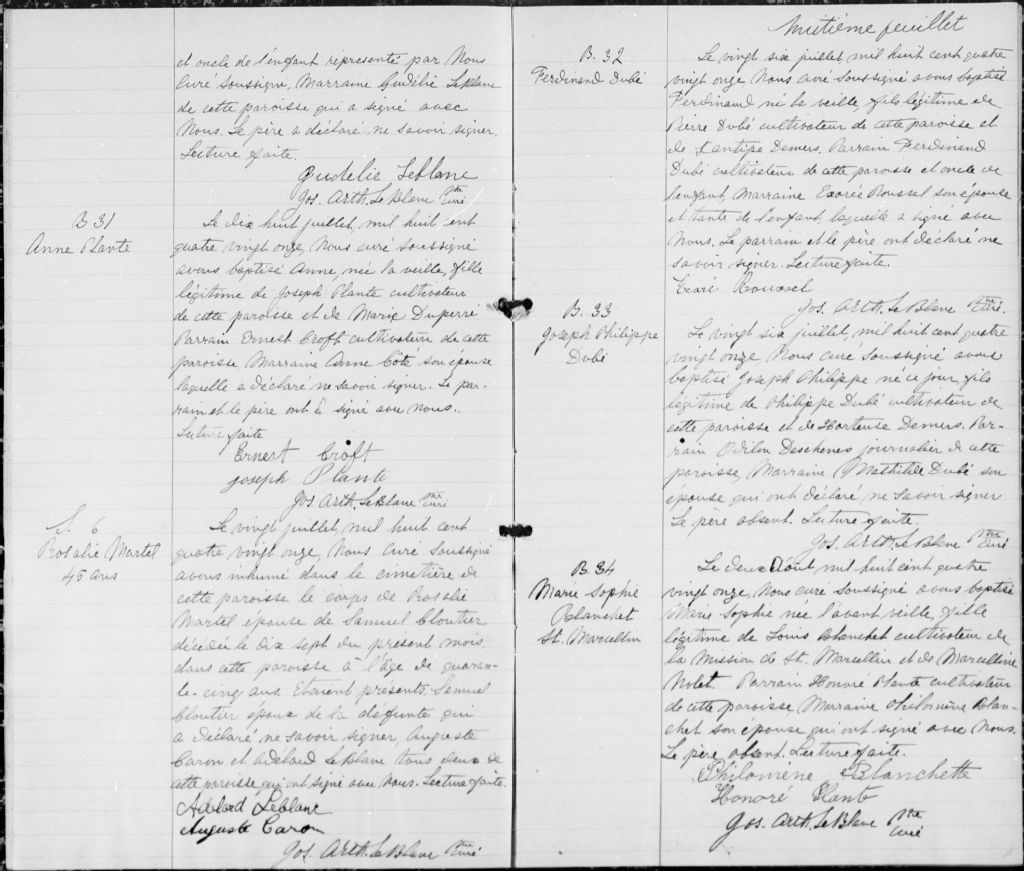 et oncle de l'enfant représenté par Nous
Curé soussigné, Marraine Gudélie Leblanc
de cette paroisse qui a signé avec
Nous. Le père a déclaré ne savoir signer.
Lecture faite.
Gudelie Leblanc
Jos. Arth. LeBlanc Ptre Curé
B 31
Anne Plante
Le dix huit juillet, mil huit cent
quatre vingt onze, Nous curé soussigné
avons baptisé Anne, née la veille, fille
légitime de Joseph Plante cultivateur
de cette paroisse et de Marie Duperré
Parrain Ernest Croft cultivateur de cette
paroisse Marraine Anne Côté son épouse
laquelle a déclaré ne savoir signer. Le par-
rain et le père ont signé avec nous.
Lecture faite
Ernest Croft
Joseph Plante
Jos Arth. LeBlanc Ptre Curé
S. 6
Rosalie Martel
45 ans
Le vingt juillet, mil huit cent
quatre vingt onze, Nous Curé Soussigné
avons inhumé dans le cimetière de
cette paroisse le corps de Rosalie
Martel épouse de Samuel Cloutier
décédée le dix sept du present mois
dans cette paroisse à l'âge de quaran-
te-cinq ans. Etaient présents Samuel
Cloutier époux de la défunte qui
a déclaré ne savoir signer, Auguste
Caron et Adélard LeBlanc tous deux de
cette paroisse qui ont signé avec Nous. Lecture faite.
Adelord Leblanc
Auguste Caron
Jos. Arth. LeBlanc Ptre Curé
Huitième feuillet
B. 32
Ferdinand Dubé
Le vingt six juillet mil huit cent quatre
vingt onze Nous curé soussigné avons baptisé
Ferdinand né la veille, fils légitime de
Pierre Dubé cultivateur de cette paroisse et
de Demers. Parrain Ferdinand
Dubé cultivateur de cette paroisse et oncle de
l'enfant, Marraine Exorée Roussel son épouse
et tante de l'enfant laquelle a signé avec
Nous. Le parrain et le père ont déclaré ne
savoir signer. Lecture faite.
Roussel
Jos. Arth. LeBlanc Ptre Curé.
B. 33
Joseph Philippe
Dubé
Le vingt six juillet, mil huit cent quatre
vingt onze Nous curé soussigné avons
baptisé Joseph Philippe né ce jour, fils
légitime de Philippe Dubé cultivateur de
cette paroisse et de Hortense Demers. Par-
rain Odilon Deschenes journalier de cette
paroisse, Marraine Mathilde Dubé son
épouse qui ont déclaré ne savoir signer
Le père absent. Lecture faite.
Jos. Arth. LeBlanc Ptre Curé
B. 34
Marie Sophie
Blanchet
St. Marcellin
Le deux Août mil huit cent quatre
vingt onze, Nous curé soussigné avons baptisé
Marie Sophie née l'avant veille, fille
légitime de Louis Blanchet cultivateur de
la Mission de St. Marcellin et de Marcelline
Nolet. Parrain Honoré Plante cultivateur
de cette paroisse, Marraine Philomène Blan-
chet son épouse qui ont signé avec Nous.
Le père absent. Lecture faite.
Philomène Blanchette
Honoré Plante
Jos. Arth. LeBlanc Ptre Curé